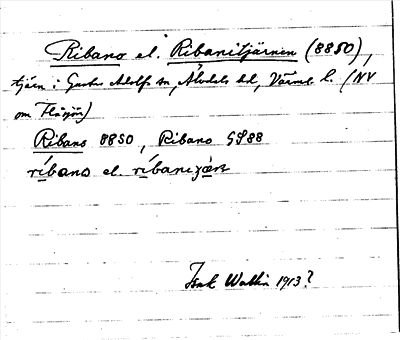 Ribano el. Ribanitjärnen (8850),
tjärn i Gust. Adolfs sn, Älvdals hd, Värml. l. (NV
om Häljön)
Ribans 8850, Ribano GS88
ribano el. ribani
Isak Wallin 1913?